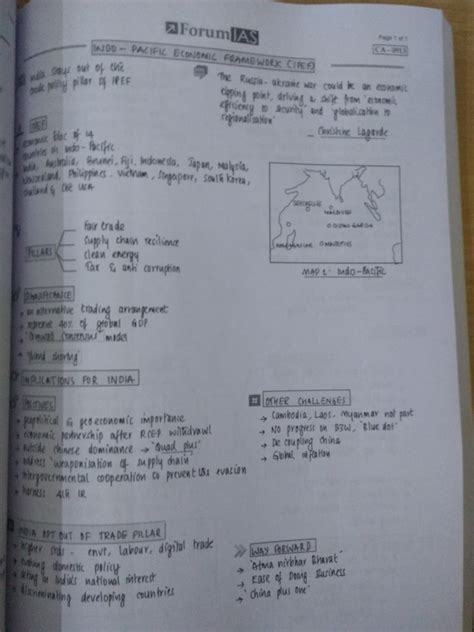 ForumIAS
Page 1 of 1
CA-0013
INDO - PACIFIC ECONOMIC FRAMEWORK (IPEF)
India stays out of the
trade policy pillar of IPEF
The Russia-Ukraine war could be an economic
tipping point, driving a shift from 'economic
efficiency to security' and 'globalisation to
regionalisation'
- Christine Lagarde
economic bloc of 14
countries in Indo-Pacific
India, Australia, Brunei, Fiji, Indonesia, Japan, Malaysia,
Newzealand, Philippines, Vietnam, Singapore, South Korea,
Thailand & the USA
PILLARS
Fair trade
Supply chain resilience
clean energy
Tax & anti corruption
SEYCHELLES
MALDIVES
DIEGO GARCIA
MADAGASCAR
MAURITIUS
MAP 1: Indo-Pacific
SIGNIFICANCE
an alternative trading arrangement
represent 40% of global GDP
consensus' model
shoring'
IMPLICATIONS FOR INDIA
POSITIVES
geopolitical & geo economic importance
economic partnership after RCEP withdrawl
outside chinese dominance → 'Quad plus'
address 'weaponisation of supply chain'
intergovernmental cooperation to prevent tax evasion
harness 4th IR
OTHER CHALLENGES
→ Cambodia, Laos, Myanmar not part
→ No progress on B3W, 'Blue dot'
→ De coupling china
→ Global
INDIA OPT OUT OF TRADE PILLAR
higher stds - envt, Labour, digital trade
evolving domestic policy
India's national interest
discriminating developing countries
WAY FORWARD
→ 'Atma nirbhar Bharat'
→ Ease of Doing Business
→ 'China plus one'